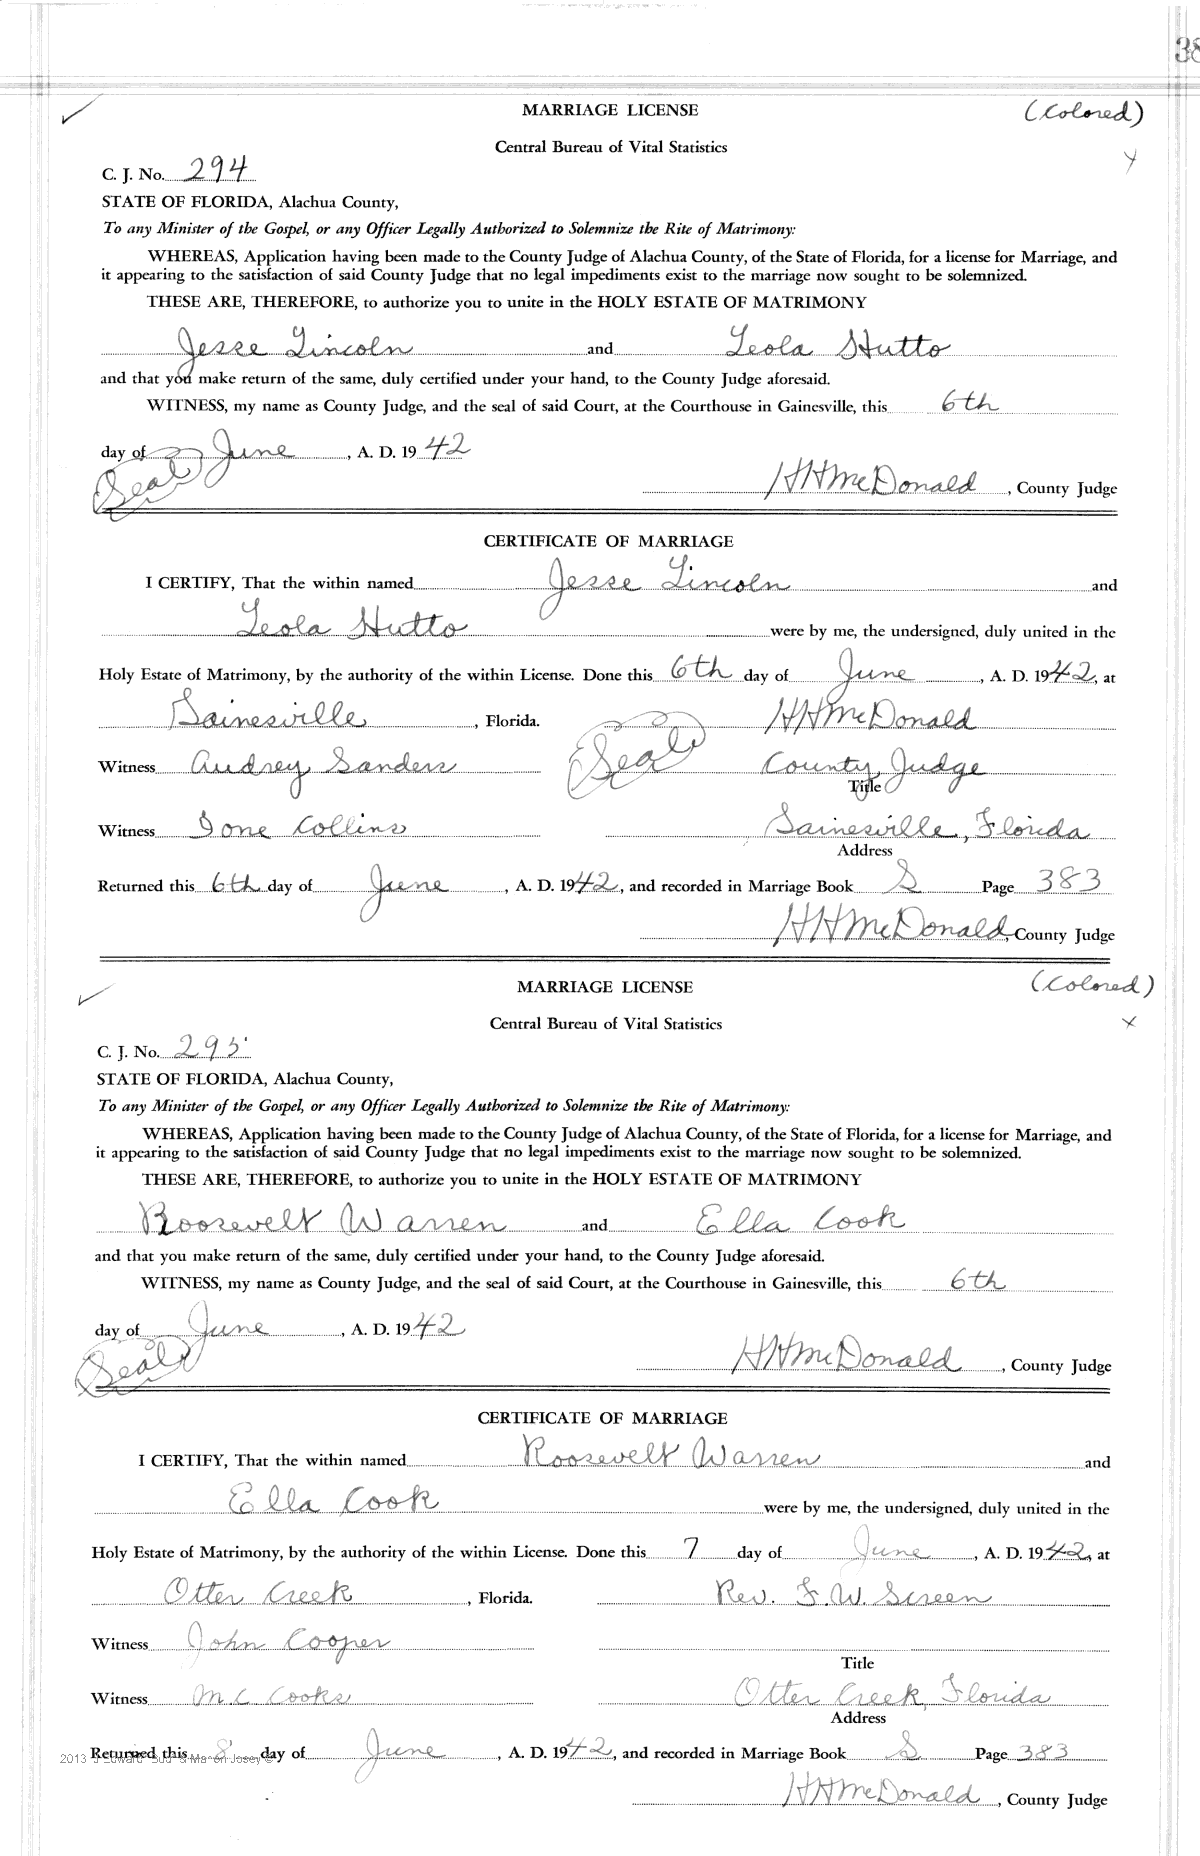 38
MARRIAGE LICENSE (Colored)
Central Bureau of Vital Statistics
C. J. No. 294
STATE OF FLORIDA, Alachua County,
To any Minister of the Gospel, or any Officer Legally Authorized to Solemnize the Rite of Matrimony:
WHEREAS, Application having been made to the County Judge of Alachua County, of the State of Florida, for a license for Marriage, and
it appearing to the satisfaction of said County Judge that no legal impediments exist to the marriage now sought to be solemnized.
THESE ARE, THEREFORE, to authorize you to unite in the HOLY ESTATE OF MATRIMONY
Jesse Lincoln and Leola Hutto
and that you make return of the same, duly certified under your hand, to the County Judge aforesaid.
WITNESS, my name as County Judge, and the seal of said Court, at the Courthouse in Gainesville, this 6th
day of June, A. D. 1942
Seal HH McDonald, County Judge
CERTIFICATE OF MARRIAGE
I CERTIFY, That the within named Jesse Lincoln and
Leola Hutto were by me, the undersigned, duly united in the
Holy Estate of Matrimony, by the authority of the within License. Done this 6th day of June, A. D. 1942, at
Gainesville, Florida. HH McDonald
Seal
Witness Audrey Sanders County Judge
Title
Witness Ione Collins Gainesville, Florida
Address
Returned this 6th day of June, A. D. 1942, and recorded in Marriage Book S Page 383
HH McDonald, County Judge
MARRIAGE LICENSE (Colored)
Central Bureau of Vital Statistics x
C. J. No. 295
STATE OF FLORIDA, Alachua County,
To any Minister of the Gospel, or any Officer Legally Authorized to Solemnize the Rite of Matrimony:
WHEREAS, Application having been made to the County Judge of Alachua County, of the State of Florida, for a license for Marriage, and
it appearing to the satisfaction of said County Judge that no legal impediments exist to the marriage now sought to be solemnized.
THESE ARE, THEREFORE, to authorize you to unite in the HOLY ESTATE OF MATRIMONY
Roosevelt Warren and Ella Cook
and that you make return of the same, duly certified under your hand, to the County Judge aforesaid.
WITNESS, my name as County Judge, and the seal of said Court, at the Courthouse in Gainesville, this 6th
day of June, A. D. 1942
Seal HH McDonald, County Judge
CERTIFICATE OF MARRIAGE
I CERTIFY, That the within named Roosevelt Warren and
Ella Cook were by me, the undersigned, duly united in the
Holy Estate of Matrimony, by the authority of the within License. Done this 7 day of June, A. D. 1942, at
Otter Creek, Florida. Rev. F. W. Screen
Witness John Cooper
Title
Witness M.C. Cooks Otter Creek, Florida
Address
Returned this 8 day of June, A. D. 1942, and recorded in Marriage Book S Page 383
2013 J Edward "Bud" & Marion Josey ©
HH McDonald, County Judge